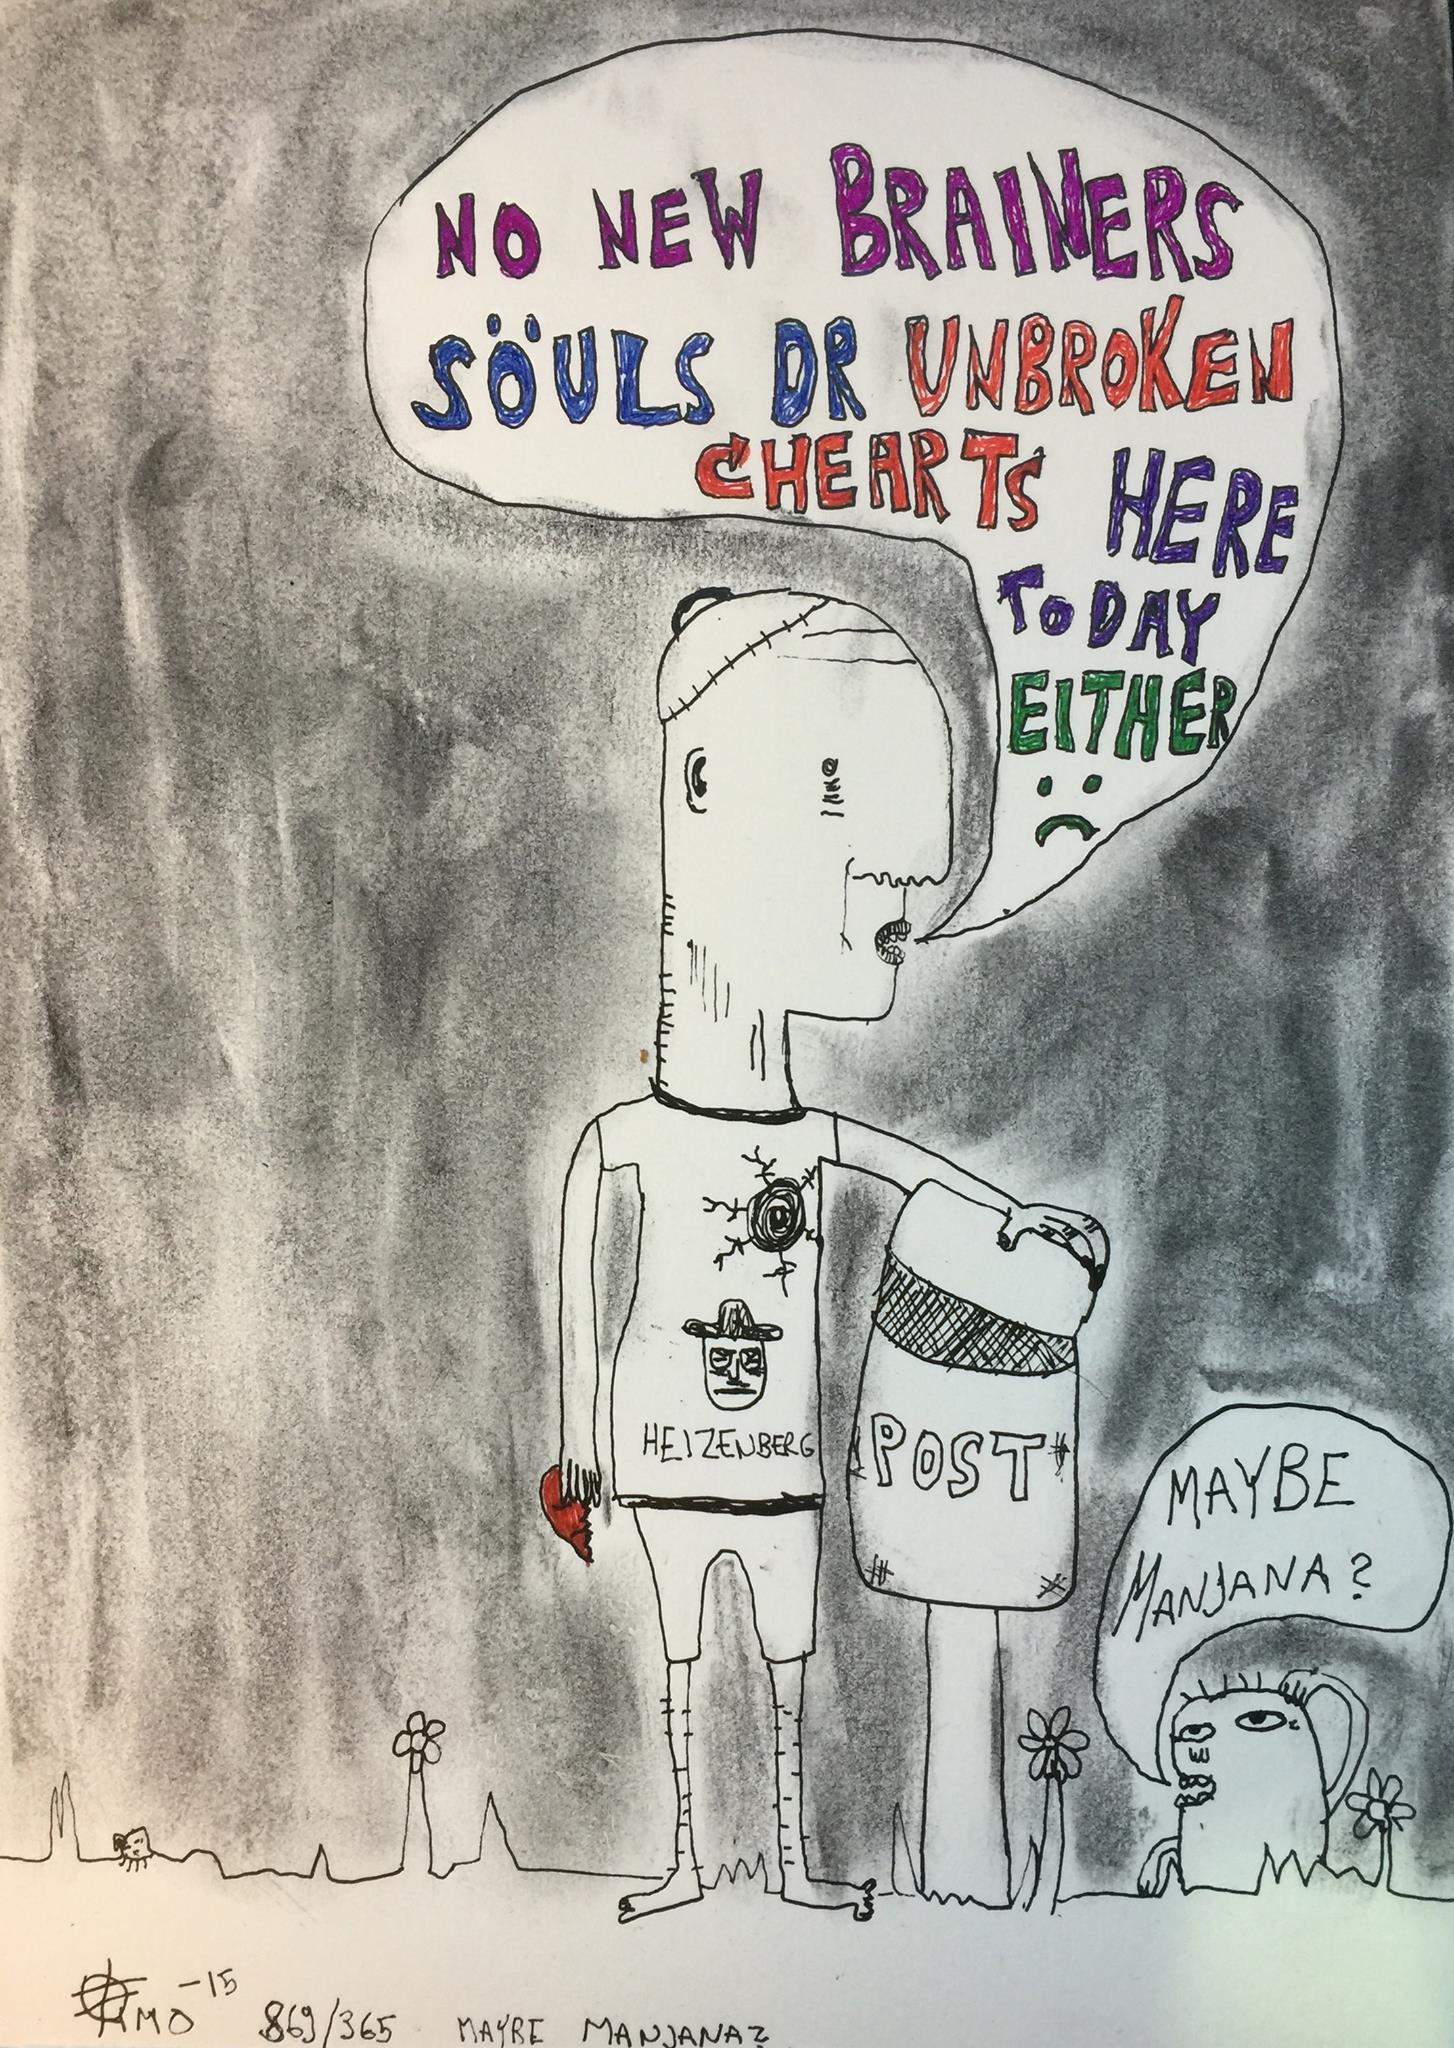 NO NEW BRAINERS
SÖULS OR UNBROKEN
CHEARTS HERE
TODAY
EITHER
HEIZENBERG
POST
MAYBE
MANJANA?
AMO -15 869/365 MAYBE MANJANA?